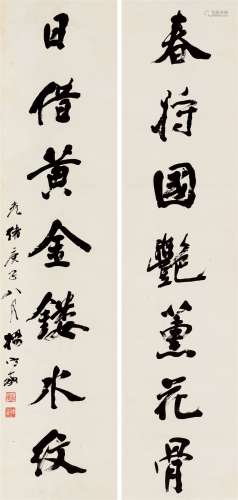 春將國艷薰花骨
日借黃金鏤水紋
光緒庚子八月楊守敬